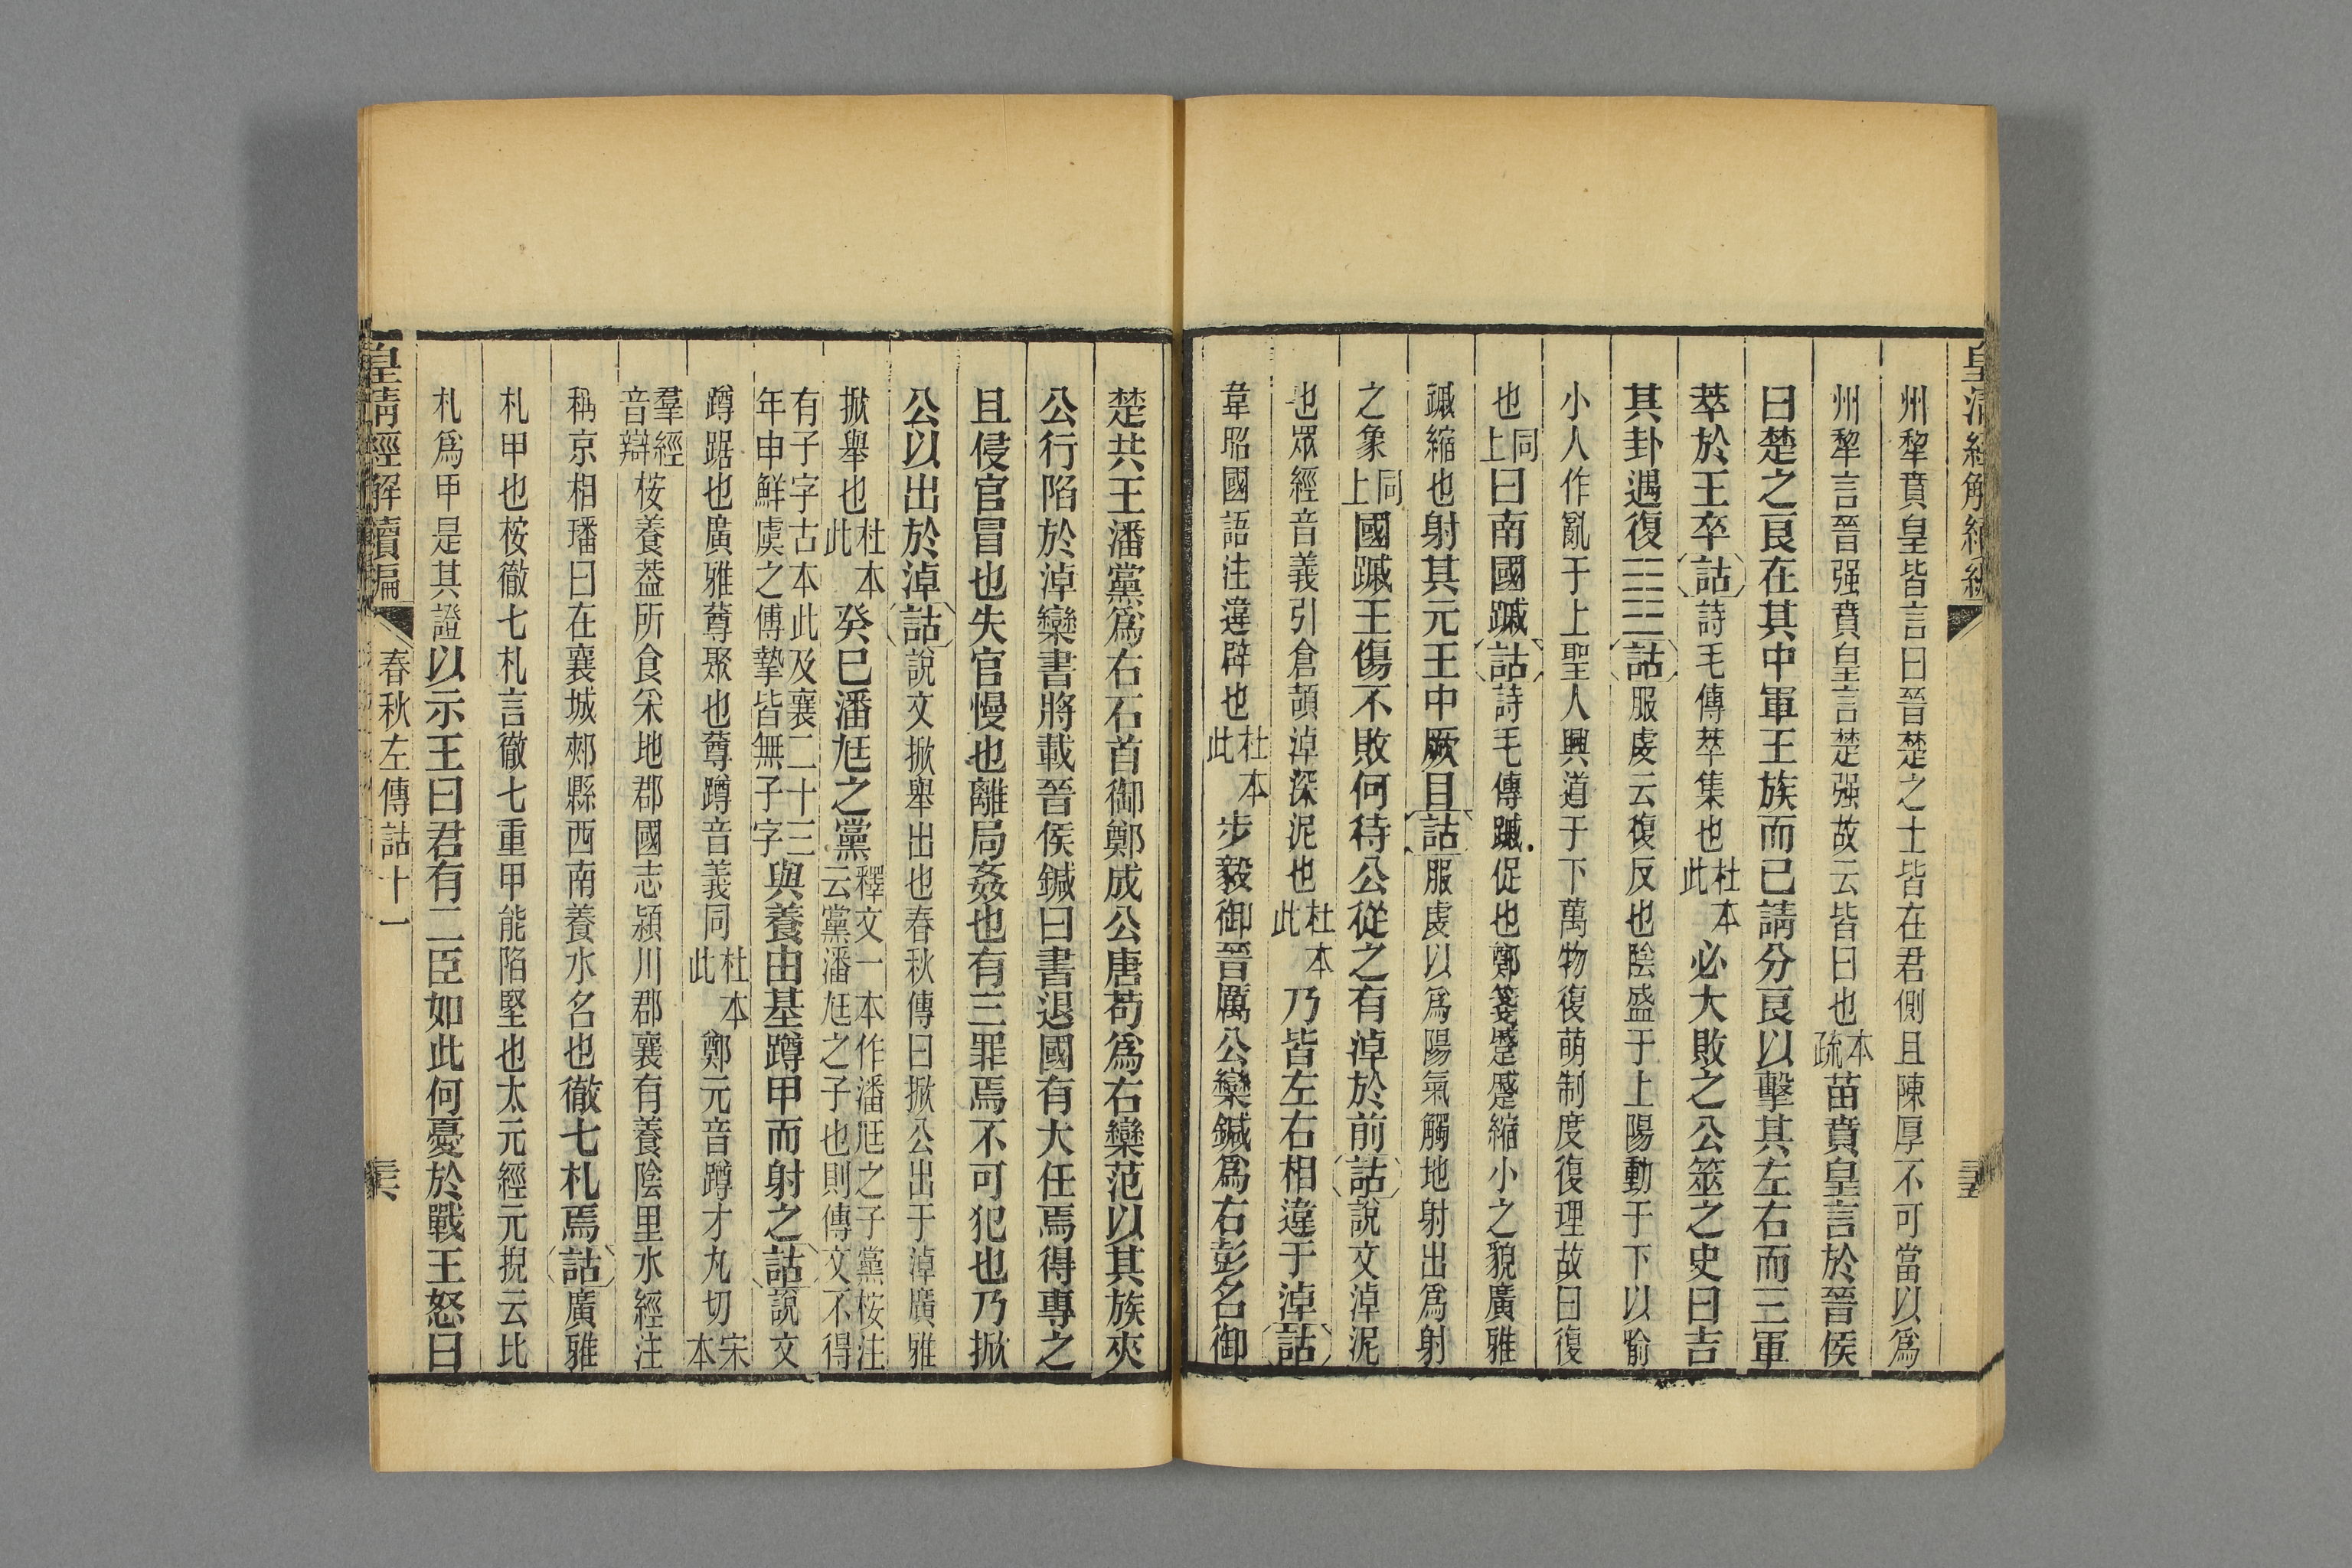 皇清經解續編
州犂賁皇皆言曰晉楚之士皆在君側且陳厚不可當以爲
州犂言晉强賁皇言楚强故云皆曰也本疏苗賁皇言於晉侯
曰楚之良在其中軍王族而已請分良以擊其左右而三軍
萃於王卒詁詩毛傳萃集也杜本此必大敗之公筮之史曰吉
其卦遇復䷗詁服虔云復反也陰盛于上陽動于下以喻
小人作亂于上聖人興道于下萬物復萌制度復理故曰復
也同上曰南國蹙詁詩毛傳蹙促也鄭箋蹙蹙縮小之貌廣雅
蹙縮也射其元王中厥目詁服虔以爲陽氣觸地射出爲射
之象同上國蹙王傷不敗何待公從之有淖於前詁說文淖泥
也眾經音義引倉頡淖深泥也杜本此乃皆左右相違于淖詁
韋昭國語注違辟也杜本此步毅御晉厲公欒鍼爲右彭名御
楚共王潘黨爲右石首御鄭成公唐苟爲右欒范以其族夾
公行陷於淖欒書將載晉侯鍼曰書退國有大任焉得專之
且侵官冒也失官慢也離局姦也有三罪焉不可犯也乃掀
公以出於淖詁說文掀舉出也春秋傳曰掀公出于淖廣雅
掀舉也杜本此癸巳潘尪之黨釋文一本作潘尪之子黨桉注云黨潘尪之子也則傳文不得
有子字古本此及襄二十三年申鮮虞之傅摯皆無子字與養由基蹲甲而射之詁說文
蹲踞也廣雅蹲聚也蹲蹲音義同杜本此鄭元音蹲才丸切宋本
羣經音辯桉養葢所食采地郡國志潁川郡襄有養陰里水經注
稱京相璠曰在襄城郟縣西南養水名也徹七札焉詁廣雅
札甲也桉徹七札言徹七重甲能陷堅也太元經元掜云比
札爲甲是其證以示王曰君有二臣如此何憂於戰王怒曰
皇清經解續編 春秋左傳詁十一